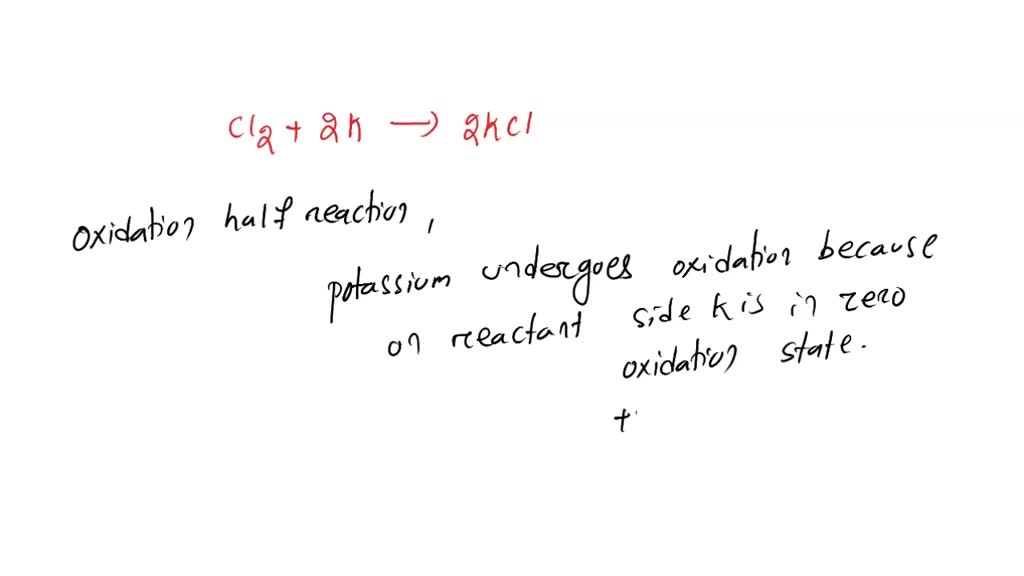 Cl2 + 2K → 2KCl
oxidation half reaction,
potassium undergoes oxidation because
on reactant side K is in zero
oxidation state.
+